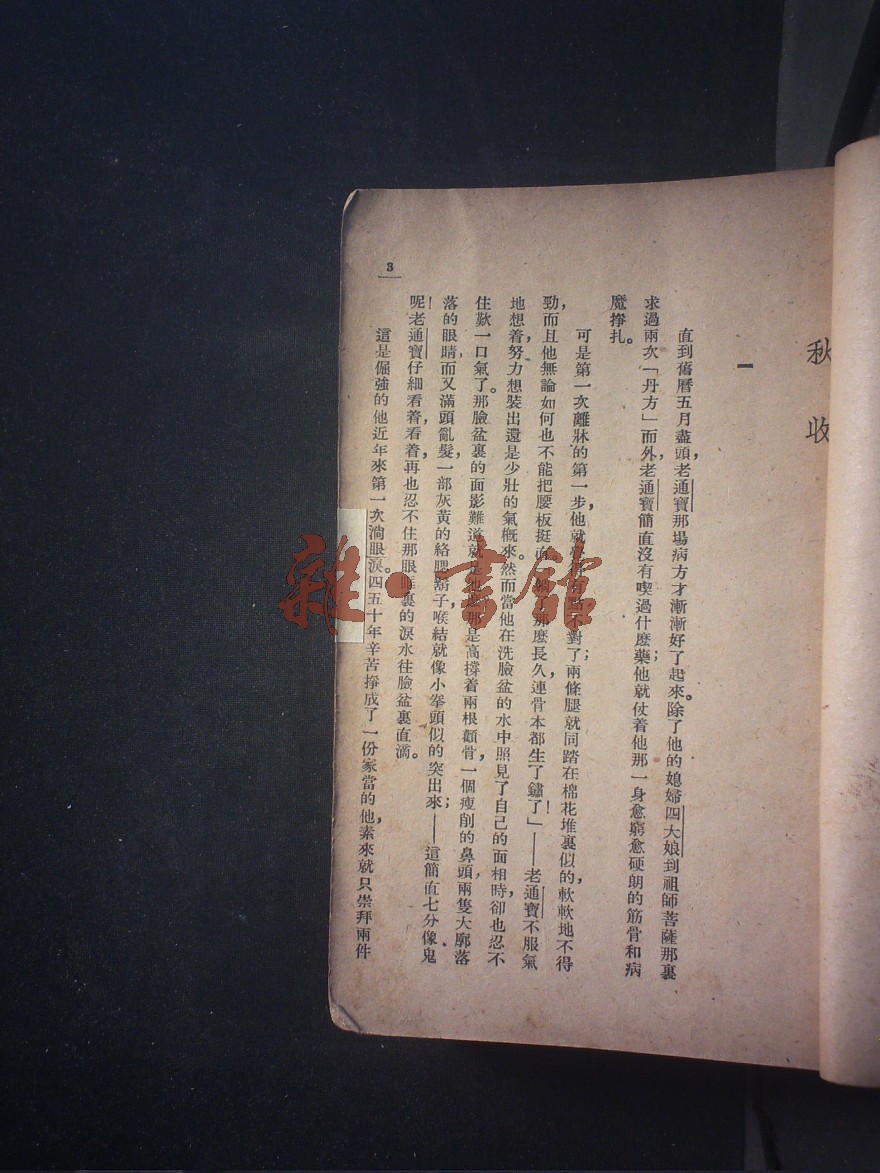 秋收
一
直到舊曆五月盡頭，老通寶那場病方才漸漸好了起來。除了他的媳婦四大娘到祖師菩薩那裏
求過兩次「丹方」而外，老通寶簡直沒有喫過什麽藥；他就仗着他那一身愈窮愈硬朗的筋骨和病
魔掙扎。
可是第一次離牀的第一步，他就有點不對了；兩條腿就同踏在棉花堆裏似的，軟軟地不得
勁，而且他無論如何也不能把腰板挺直。那麽長久，連骨本都生了鏽了！」——老通寶不服氣
地想着，努力想裝出還是少壯的氣概來。然而當他在洗臉盆的水中照見了自己的面相時，卻也忍不
住歎一口氣了。那臉盆裏的面影難道就是那是高撐着兩根顴骨，一個瘦削的鼻頭，兩隻大廓落
落的眼睛，而又滿頭亂髮，一部灰黃的絡腮鬍子，喉結就像小拳頭似的突出來；——這簡直七分像鬼
呢！老通寶仔細看着，看着，再也忍不住那眼眶裏的淚水往臉盆裏直滴。
這是倔強的他近年來第一次淌眼淚。四五十年辛苦掙成了一份家當的他，素來就只崇拜兩件
3
雜·書館